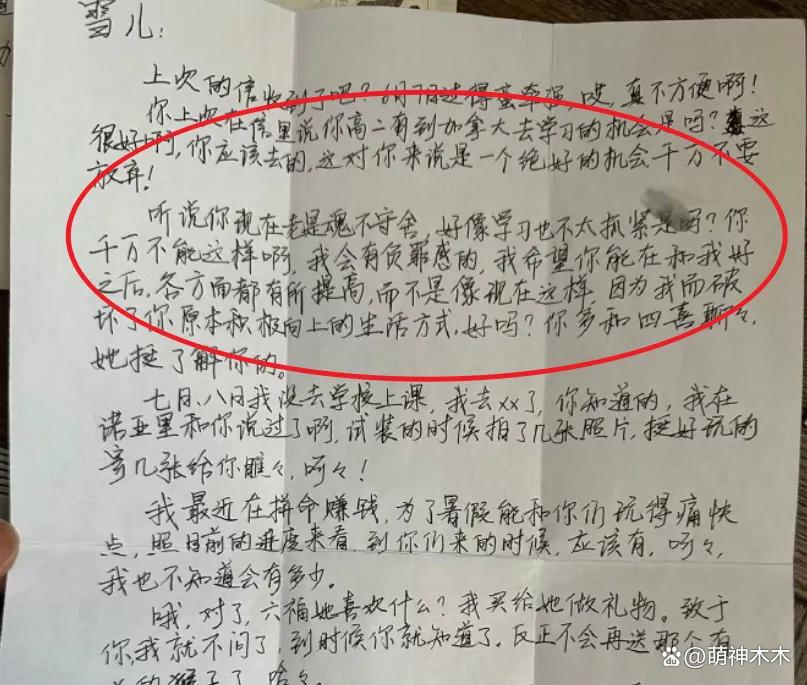 雪儿：
上次的信收到了吧？6月1日过得蛮牵强，哎，真不方便啊！
你上次在信里说你高二有到加拿大去学习的机会是吗？这
很好啊，你应该去的，这对你来说是一个绝好的机会千万不要
放弃！
听说你现在老是魂不守舍，好像学习也不太抓紧是吗？你
千万不能这样啊，我会有负罪感的，我希望你能在和我好
之后，各方面都有所提高，而不是像现在这样，因为我而破
坏了你原本积极向上的生活方式，好吗？你多和四喜聊々，
她挺了解你的。
七日、八日我没去学校上课，我去xx了，你知道的，我在
诺亚里和你说过了啊，试装的时候拍了几张照片，挺好玩的
寄几张给你瞧々，呵々！
我最近在拼命赚钱，为了暑假能和你们玩得痛快
点，照目前的进度来看，到你们来的时候，应该有，呵々，
我也不知道会有多少。
哦，对了，六福她喜欢什么？我买给她做礼物。致于
你，我就不问了，到时候你就知道了。反正不会再送那个有
的猴子了，哈々。
@萌神木木